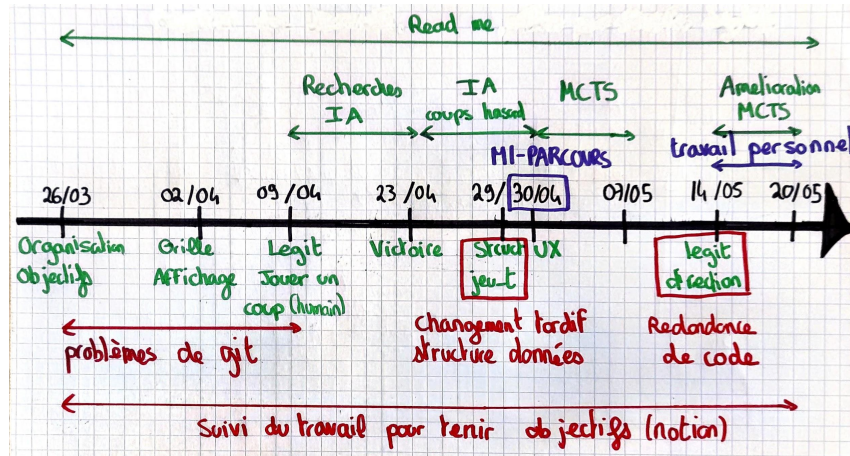 Read me
Recherches IA
IA coups hasard
MCTS
Amelioration MCTS
MI-PARCOURS
travail personnel
26/03 02/04 09/04 23/04 29/ 30/04 07/05 14/05 20/05
Organisation Objectifs
Grille Affichage
Legit Jouer un coup (humain)
Victoire
Struct jeu_t
UX
legit direction
problèmes de git
Changement tardif structure données
Redondance de code
Suivi du travail pour tenir objectifs (notion)